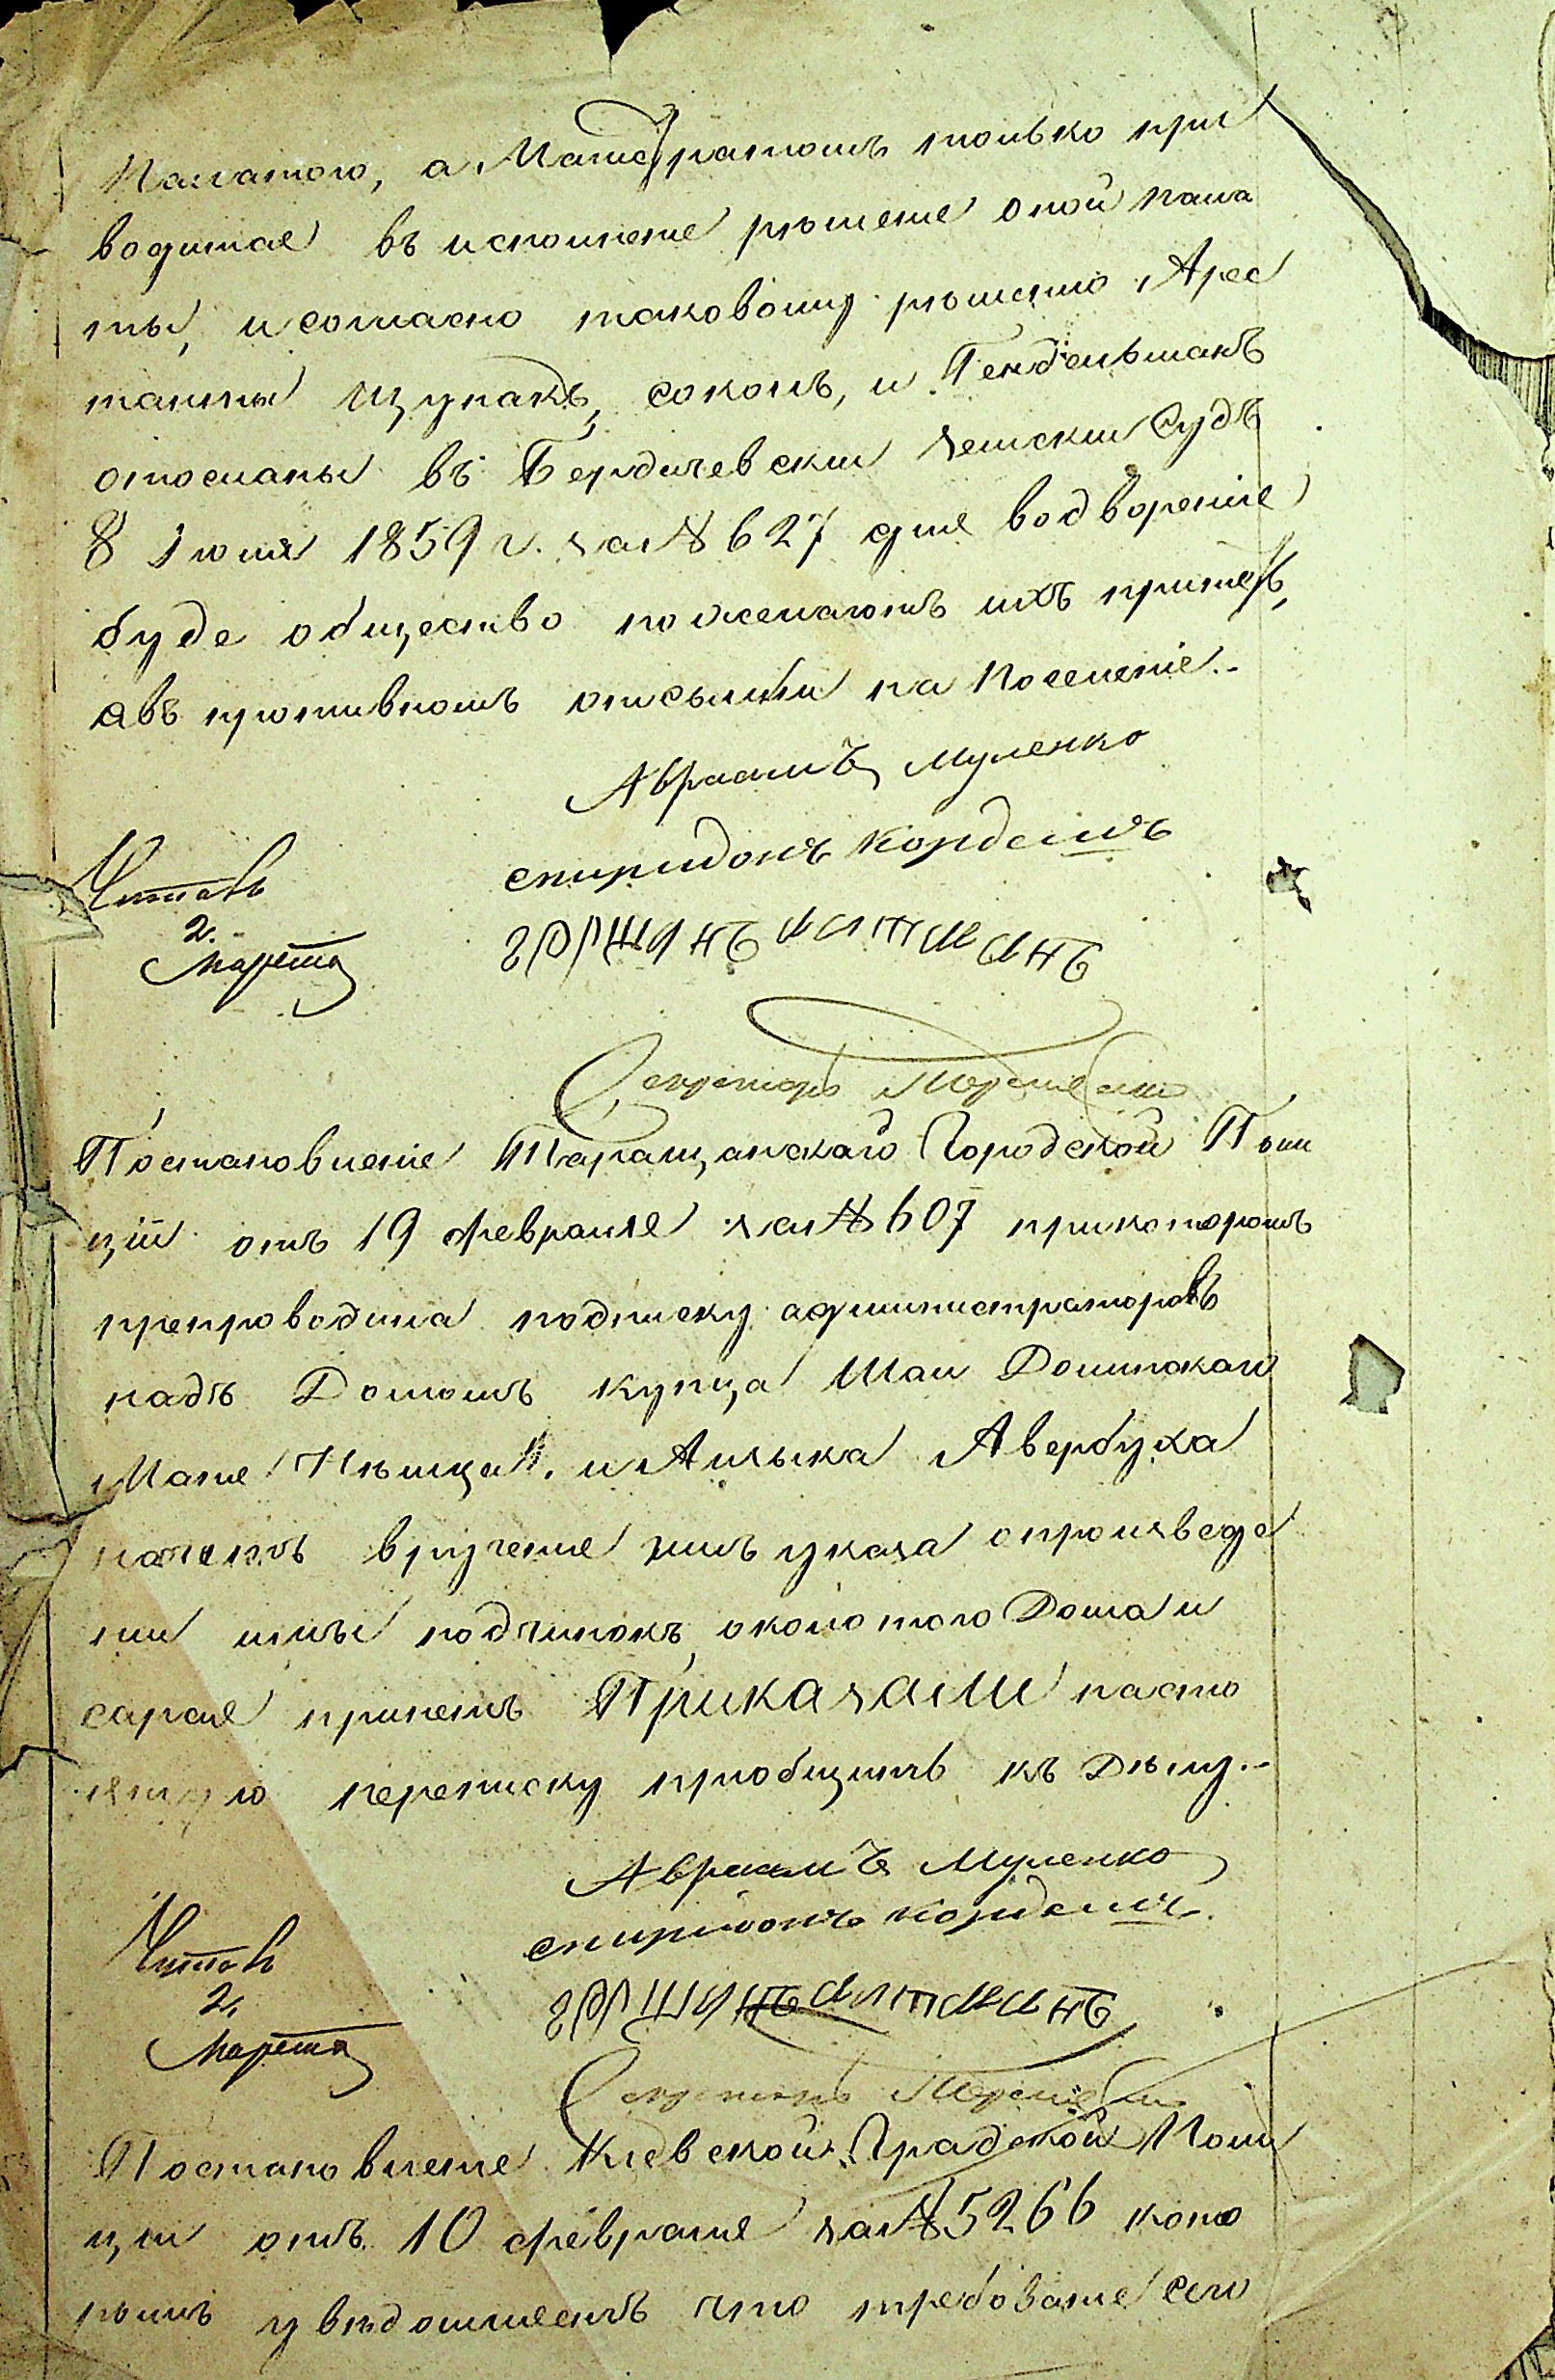 Палатою, а Магистратомъ только при
водится въ исполнение решение оной пала
ты, и согласно таковому решению Арес
танты Щупакъ, соколъ, и Гендельманъ
отосланы въ Бердичевски земски Судъ
8 Июля 1859 г. за № 627 для водворение
буде общество пожелаютъ ихъ принеть,
авъ противномъ отсылки на Поселение.
Авраамъ Муленко
спиридонъ корделъ
Читалъ
2.
Марта
Секретарь
Постановление Таращанскаго Городской Поли
ции отъ 19 февраля за № 607 прикоторомъ
препроводила подписку администраторовъ
надъ Домомъ купца Шаи Долинскаго
и Аизыка Авербуха
вручение имъ указа опроизведе
нии ими подчинокъ около того Дома и
сарая Приказали насто
ящую переписку приобщить къ Делу.
Авраамъ Муленко
спиридонъ корделъ.
Читалъ
2.
Марта
Секретарь
Постановление Киевской Градской Поли
ции отъ 10 февраля за № 5266 кото
рымъ уведомляетъ что требование сего